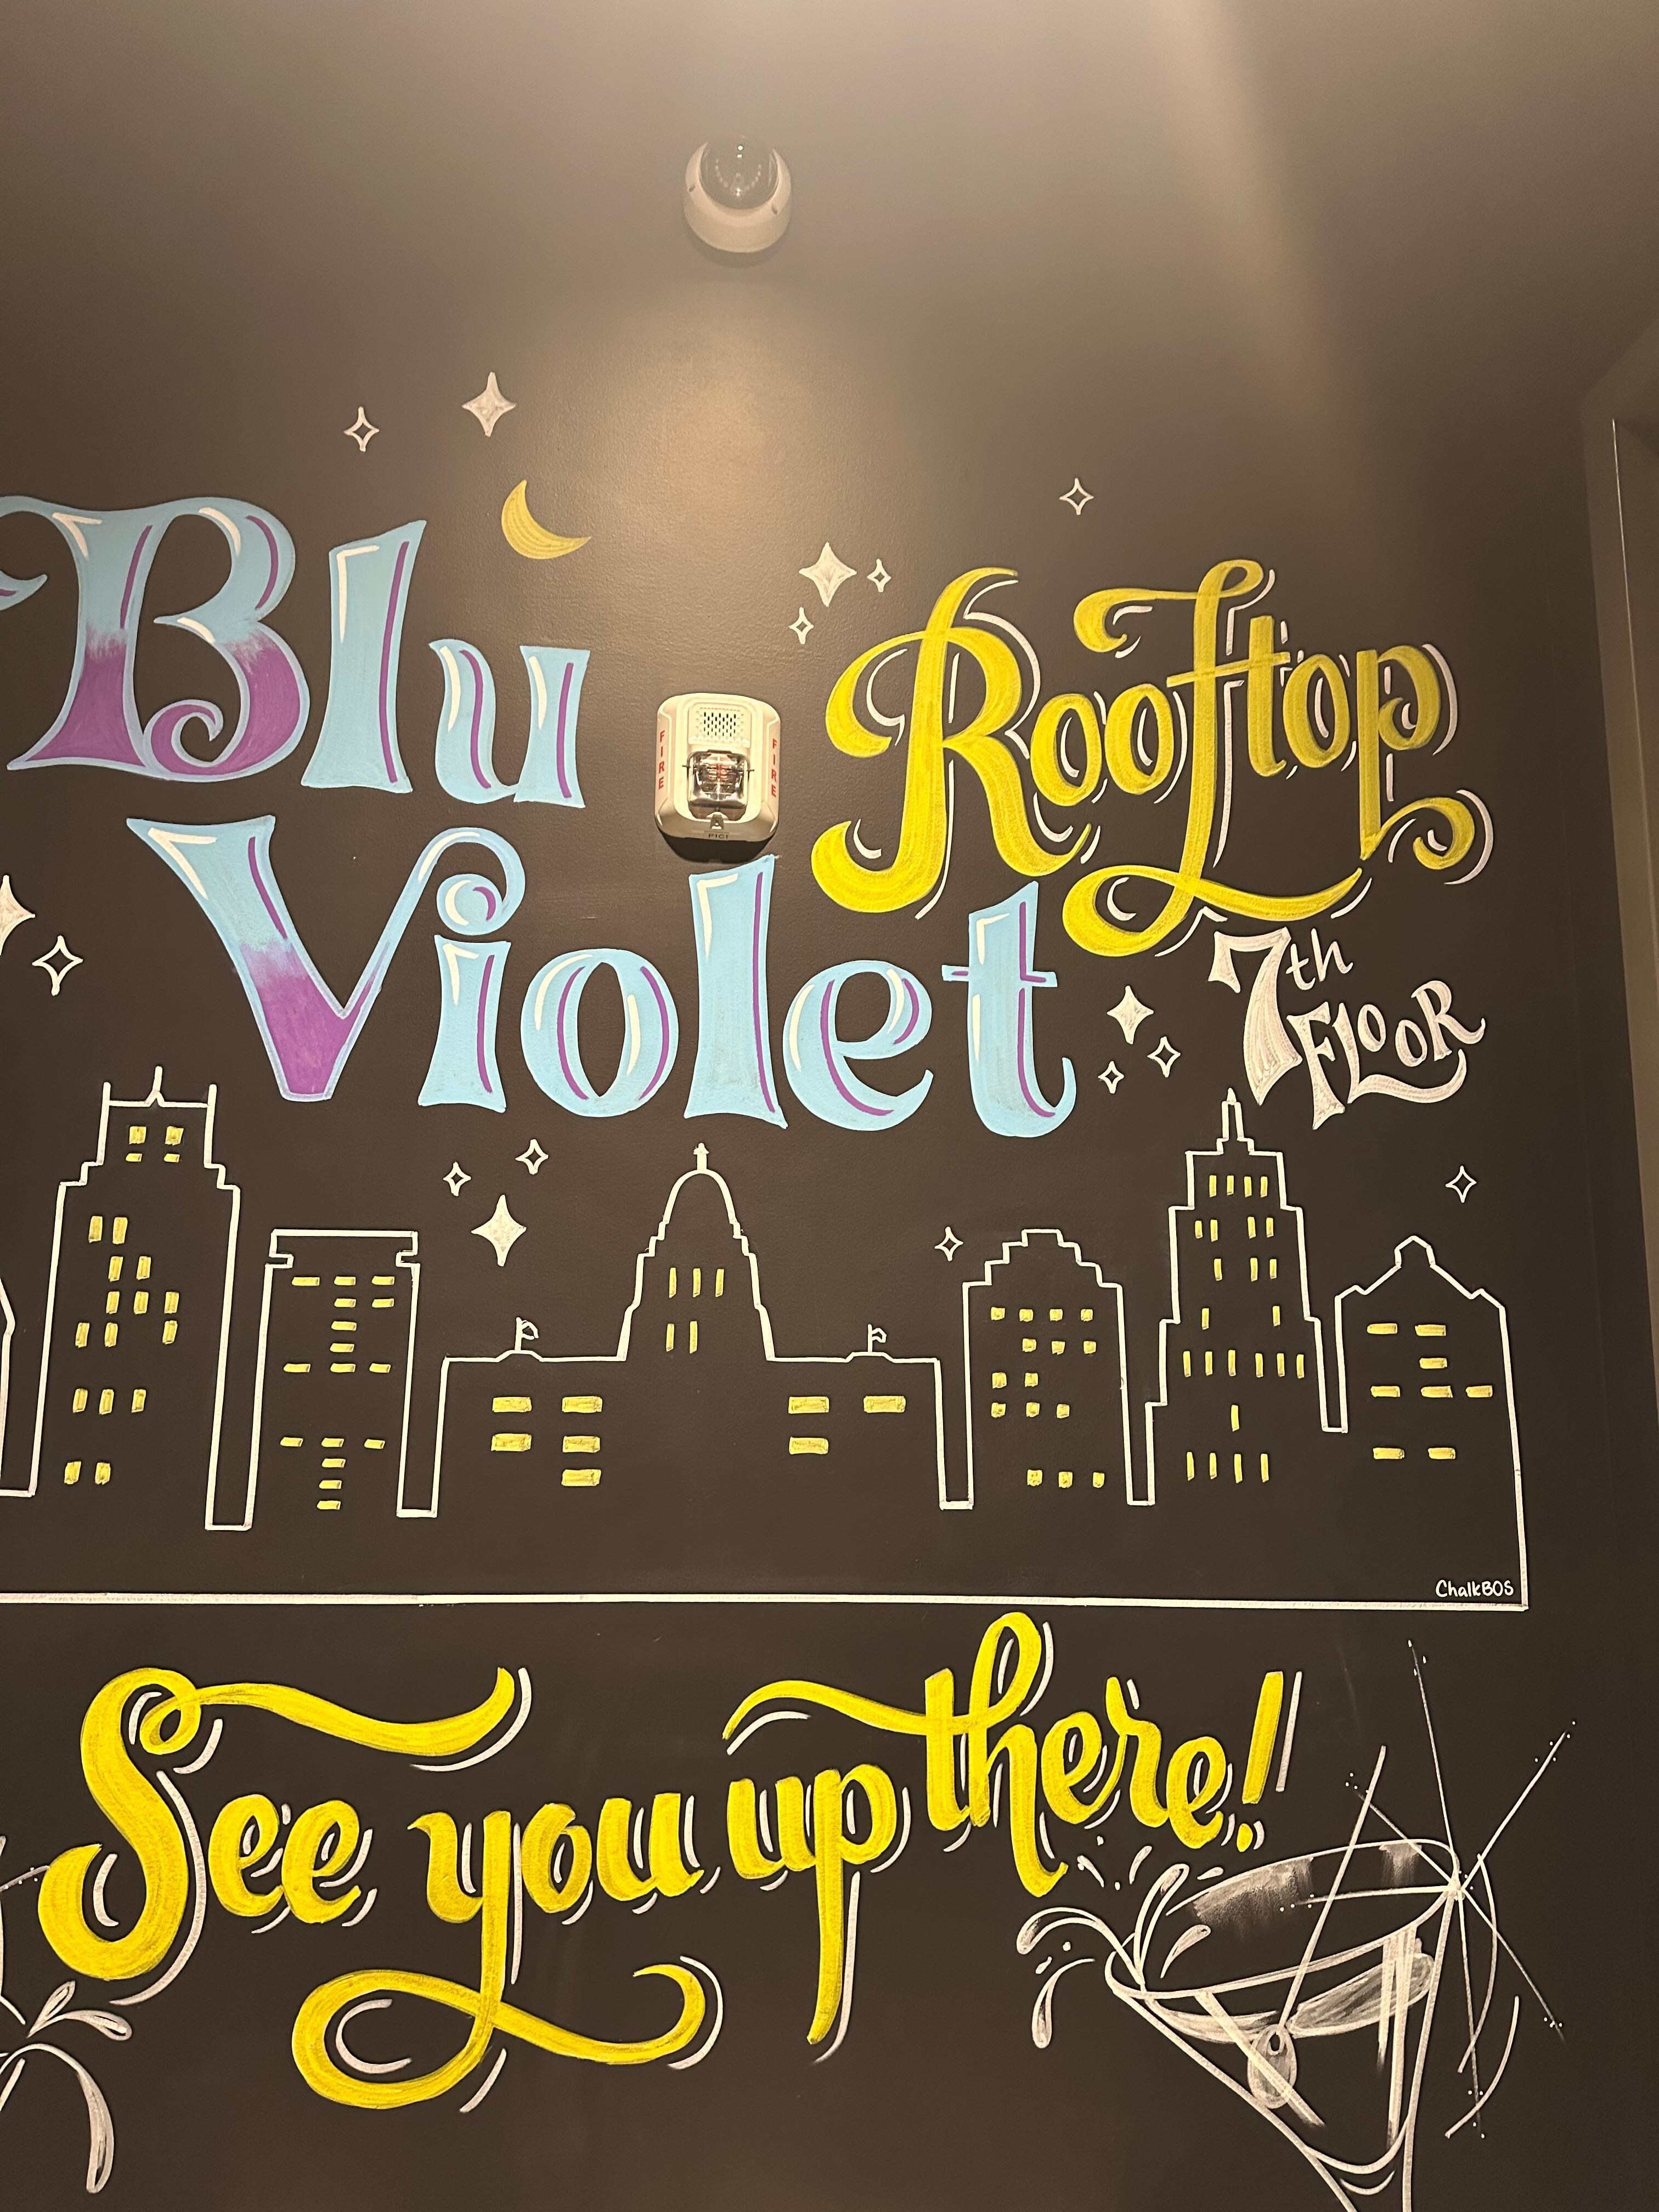 Blu
Violet
Rooftop
7th
Floor
FIRE
FIRE
ChalkBOS
See you up there!